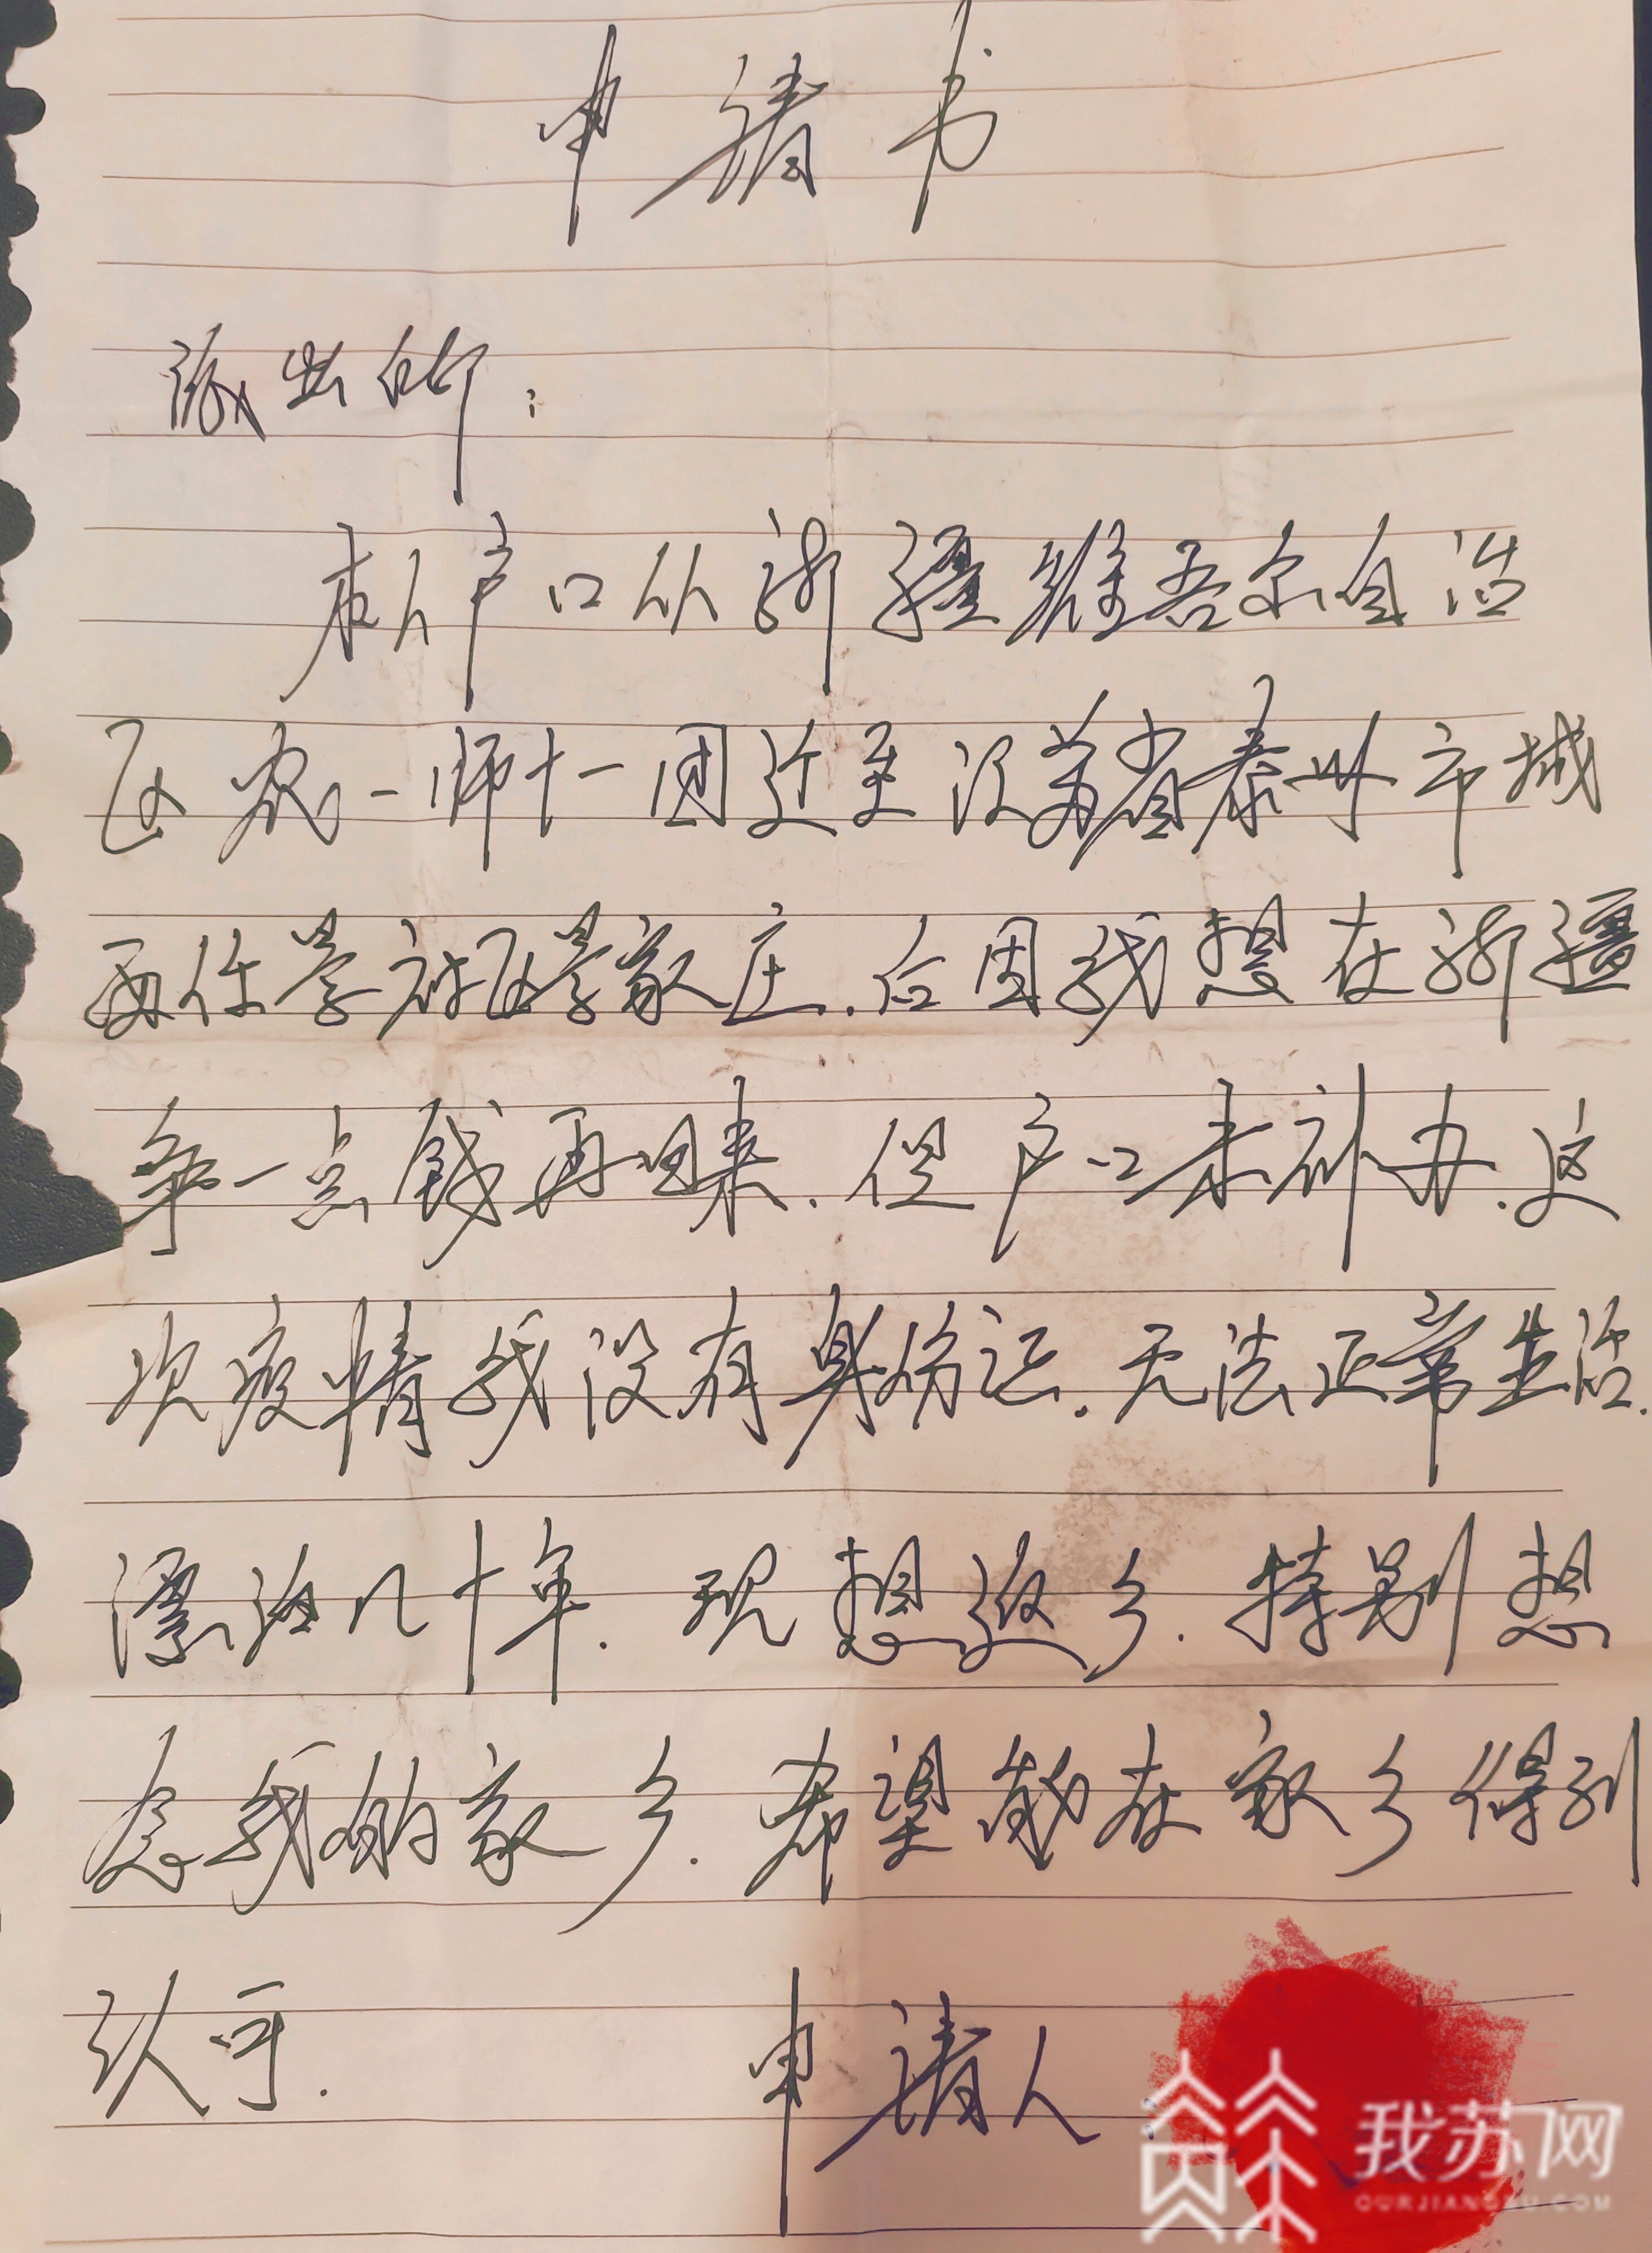 申请书
派出所:
本人户口从新疆维吾尔自治
区农一师十一团迁至江苏省泰州市城
西街景社区景家庄.后因我想在新疆
争一点钱再回来.但户口未补办.这
次疫情我没有身份证.无法正常生活.
漂泊几十年.现想返乡.特别想
念我的家乡.希望能在家乡得到
认可.
申请人
我苏网
OURJIANGSU.COM